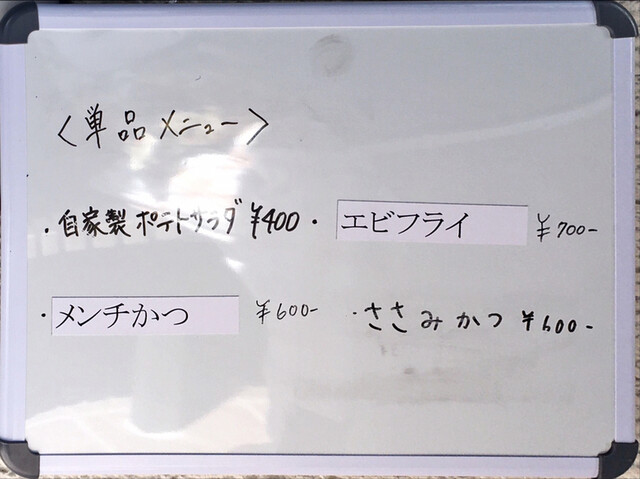 <単品メニュー>
・自家製ポテトサラダ ¥400 ・エビフライ ¥700-
・メンチかつ ¥600- ・ささみかつ ¥600-